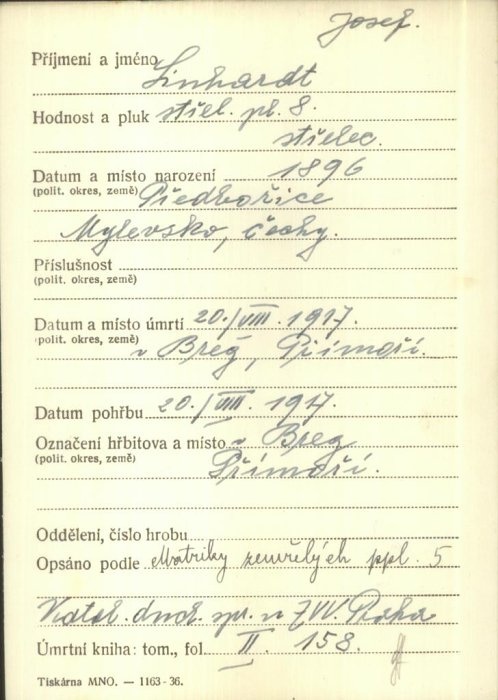 Josef.
Příjmení a jméno Linhardt
Hodnost a pluk střel. pl. 8.
střelec.
Datum a místo narození 1896
(polit. okres, země) Předbořice
Mylevsko, Čechy.
Příslušnost
(polit. okres, země)
Datum a místo úmrtí 20./VIII. 1917.
(polit. okres, země) v Breg, Přímoří.
Datum pohřbu 20./VIII. 1917.
Označení hřbitova a místo v Breg
(polit. okres, země) Přímoří.
Oddělení, číslo hrobu
Opsáno podle Matriky zemřelých ppl. 5
Katol. duch. spr. v ZVV. Praha
Úmrtní kniha: tom., fol. II. 158.
Tiskárna MNO. — 1163-36.